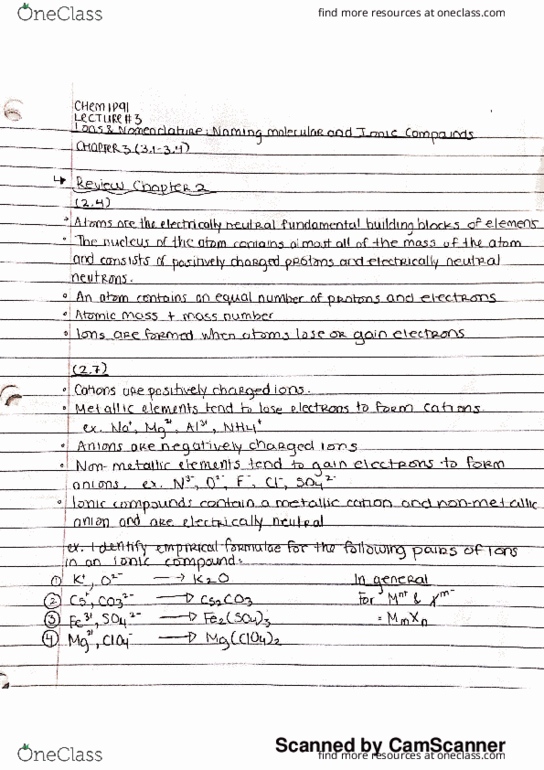 OneClass
find more resources at oneclass.com
CHEM 1P91
LECTURE #3
Ions & Nomenclature: Naming molecular and Ionic Compounds
CHAPTER 3 (3.1-3.4)
↳ Review Chapter 2
(2.4)
• Atoms are the electrically neutral fundamental building blocks of elemens
• The nucleus of the atom contains almost all of the mass of the atom
and consists of positively charged protons and electrically neutral
neutrons.
• An atom contains an equal number of protons and electrons
• Atomic mass + mass number
• Ions are formed when atoms lose or gain electrons
(2.7)
• Cations are positively charged ions.
• Metallic elements tend to lose electrons to form cations
ex. Na⁺, Mg²⁺, Al³⁺, NH₄⁺
• Anions are negatively charged ions
• Non-metallic elements tend to gain electrons to form
anions. ex. N³⁻, O²⁻, F⁻, Cl⁻, SO₄²⁻
• Ionic compounds contain a metallic cation and non-metallic
anion and are electrically neutral
ex. Identify empirical formulae for the following pairs of ions
in an ionic compound:
① K⁺, O²⁻ → K₂O In general
② Cs⁺, CO₃²⁻ → Cs₂CO₃ for Mⁿ⁺ & Xᵐ⁻
③ Fe³⁺, SO₄²⁻ → Fe₂(SO₄)₃ = MₘXₙ
④ Mg²⁺, ClO₄⁻ → Mg(ClO₄)₂
Scanned by CamScanner
OneClass
find more resources at oneclass.com